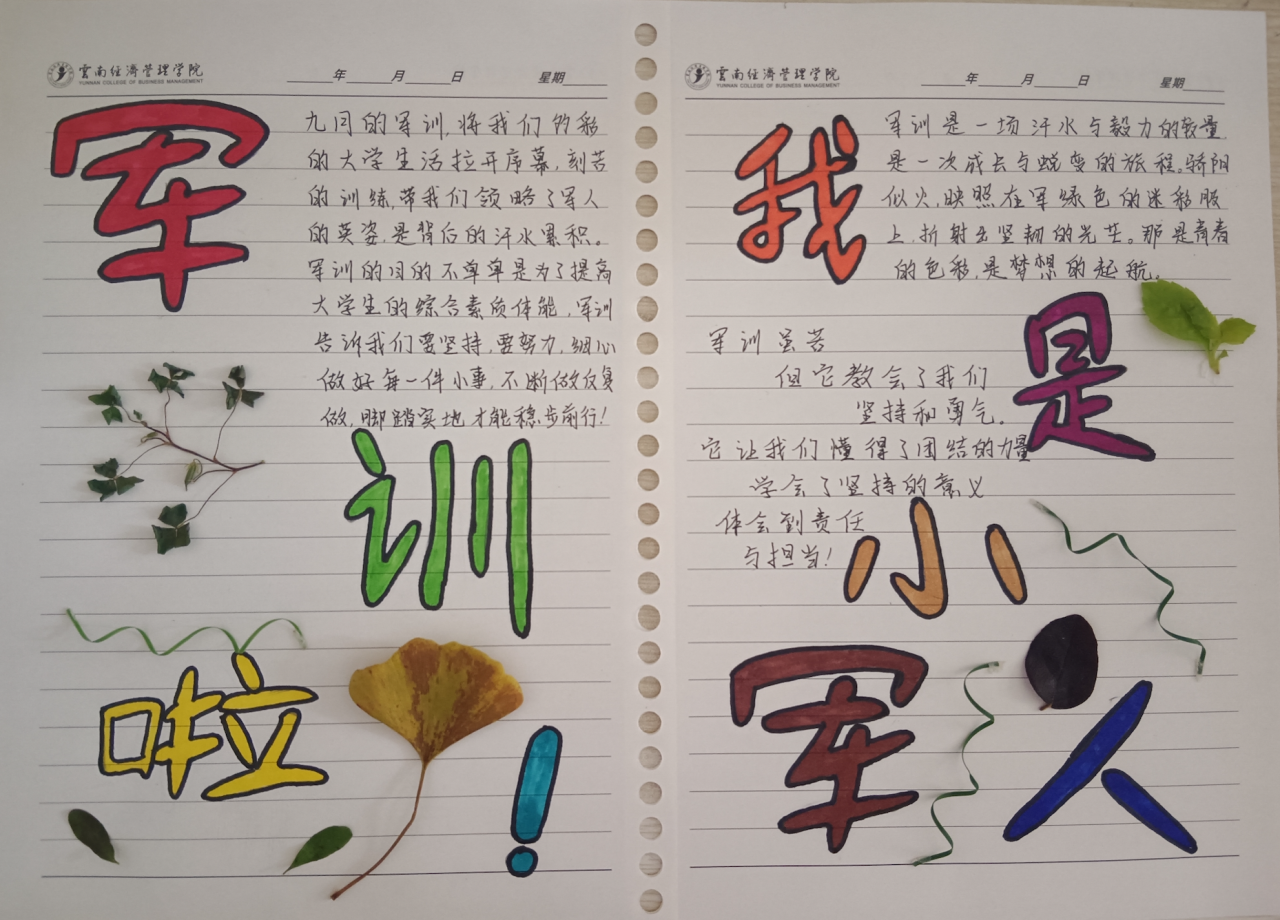 雲南经濟管理学院
YUNNAN COLLEGE OF BUSINESS MANAGEMENT
年 月 日 星期
军
九月的军训,将我们多彩
的大学生活拉开序幕,刻苦
的训练带我们领略了军人
的英姿,是背后的汗水累积。
军训的目的不单单是为了提高
大学生的综合素质体能,军训
告诉我们要坚持,要努力,细心
做好每一件小事,不断做反复
做,脚踏实地才能稳步前行!
训
啦
!
雲南经濟管理学院
YUNNAN COLLEGE OF BUSINESS MANAGEMENT
年 月 日 星期
我
军训是一场汗水与毅力的较量
是一次成长与蜕变的旅程。骄阳
似火,映照在军绿色的迷彩服
上,折射出坚韧的光芒。那是青春
的色彩,是梦想的起航。
是
军训虽苦
但它教会了我们
坚持和勇气。
它让我们懂得了团结的力量
学会了坚持的意义
体会到责任
与担当!
小
军
人